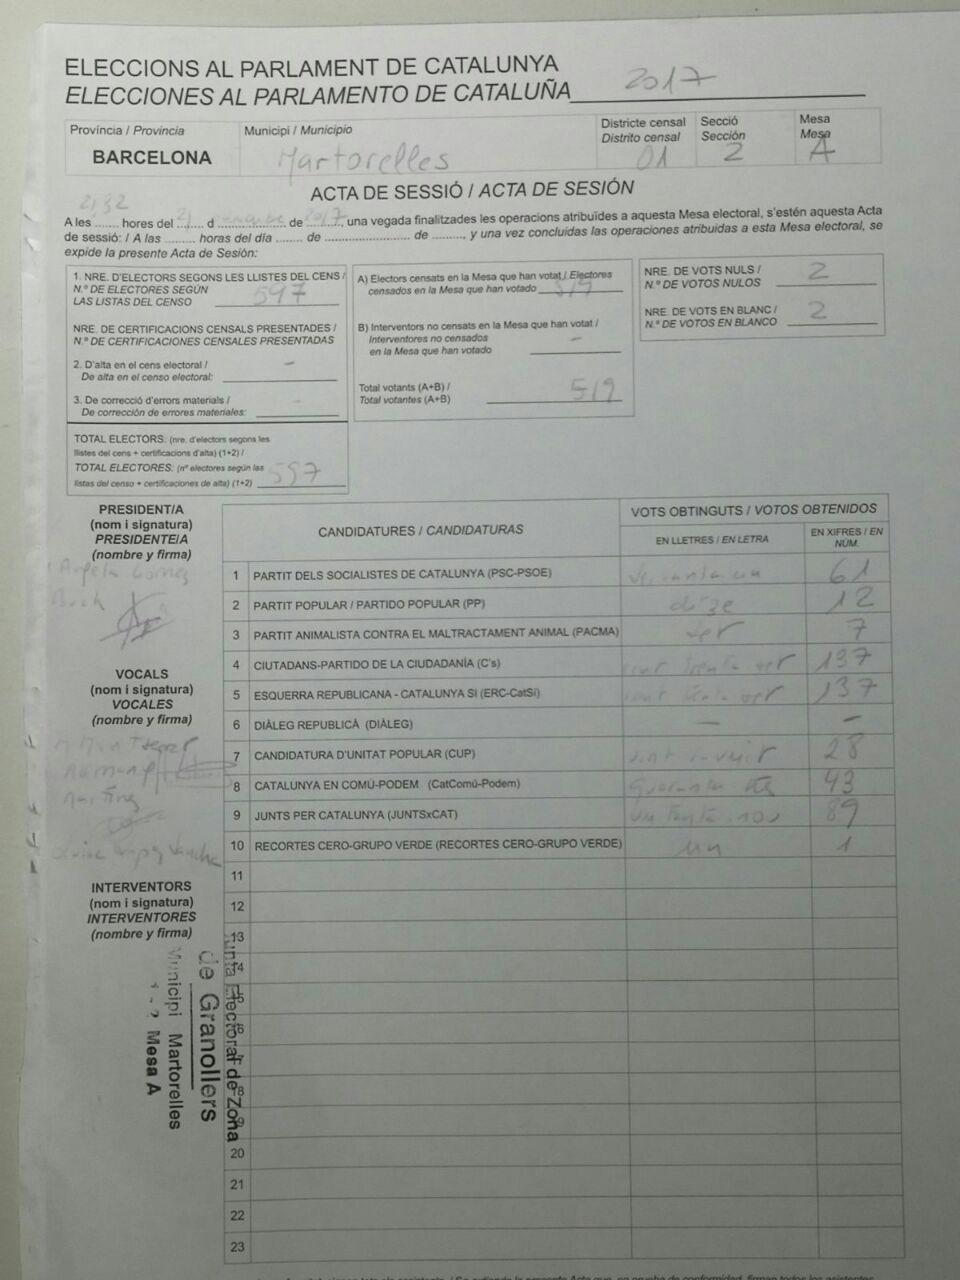 ELECCIONS AL PARLAMENT DE CATALUNYA
ELECCIONES AL PARLAMENTO DE CATALUÑA 2017
Província / Provincia
BARCELONA
Municipi / Municipio
Martorelles
Districte censal
Distrito censal
01
Secció
Sección
2
Mesa
Mesa
A
ACTA DE SESSIÓ / ACTA DE SESIÓN
A les 21,32 hores del 21 d de 2017, una vegada finalitzades les operacions atribuïdes a aquesta Mesa electoral, s'estén aquesta Acta
de sessió: / A las ......... horas del día ........ de .......................... de .........., y una vez concluidas las operaciones atribuidas a esta Mesa electoral, se
expide la presente Acta de Sesión:
1. NRE. D'ELECTORS SEGONS LES LLISTES DEL CENS /
N.º DE ELECTORES SEGÚN
LAS LISTAS DEL CENSO 597
NRE. DE CERTIFICACIONS CENSALS PRESENTADES /
N.º DE CERTIFICACIONES CENSALES PRESENTADAS
2. D'alta en el cens electoral / –
De alta en el censo electoral:
3. De correcció d'errors materials / -
De corrección de errores materiales:
TOTAL ELECTORS: (nre. d'electors segons les
llistes del cens + certificacions d'alta) (1+2) /
TOTAL ELECTORES: (nº electores según las
listas del censo + certificaciones de alta) (1+2) 597
A) Electors censats en la Mesa que han votat / Electores
censados en la Mesa que han votado 519
B) Interventors no censats en la Mesa que han votat /
Interventores no censados –
en la Mesa que han votado
Total votants (A+B) /
Total votantes (A+B) 519
NRE. DE VOTS NULS /
N.º DE VOTOS NULOS 2
NRE. DE VOTS EN BLANC /
N.º DE VOTOS EN BLANCO 2
PRESIDENT/A
(nom i signatura)
PRESIDENTE/A
(nombre y firma)
VOCALS
(nom i signatura)
VOCALES
(nombre y firma)
INTERVENTORS
(nom i signatura)
INTERVENTORES
(nombre y firma)
CANDIDATURES / CANDIDATURAS
VOTS OBTINGUTS / VOTOS OBTENIDOS
EN LLETRES / EN LETRA
EN XIFRES / EN
NÚM.
1 PARTIT DELS SOCIALISTES DE CATALUNYA (PSC-PSOE) 61
2 PARTIT POPULAR / PARTIDO POPULAR (PP) 12
3 PARTIT ANIMALISTA CONTRA EL MALTRACTAMENT ANIMAL (PACMA) set 7
4 CIUTADANS-PARTIDO DE LA CIUDADANÍA (C's) cent trenta set 137
5 ESQUERRA REPUBLICANA - CATALUNYA SÍ (ERC-CatSí) cent trenta set 137
6 DIÀLEG REPUBLICÀ (DIÀLEG) — –
7 CANDIDATURA D'UNITAT POPULAR (CUP) 28
8 CATALUNYA EN COMÚ-PODEM (CatComú-Podem) 43
9 JUNTS PER CATALUNYA (JUNTSxCAT) 89
10 RECORTES CERO-GRUPO VERDE (RECORTES CERO-GRUPO VERDE) un 1
11
12
13
14
15
16
17
18
19
20
21
22
23
Junta Electoral de Zona
de Granollers
Municipi Martorelles
1 - 2 Mesa A